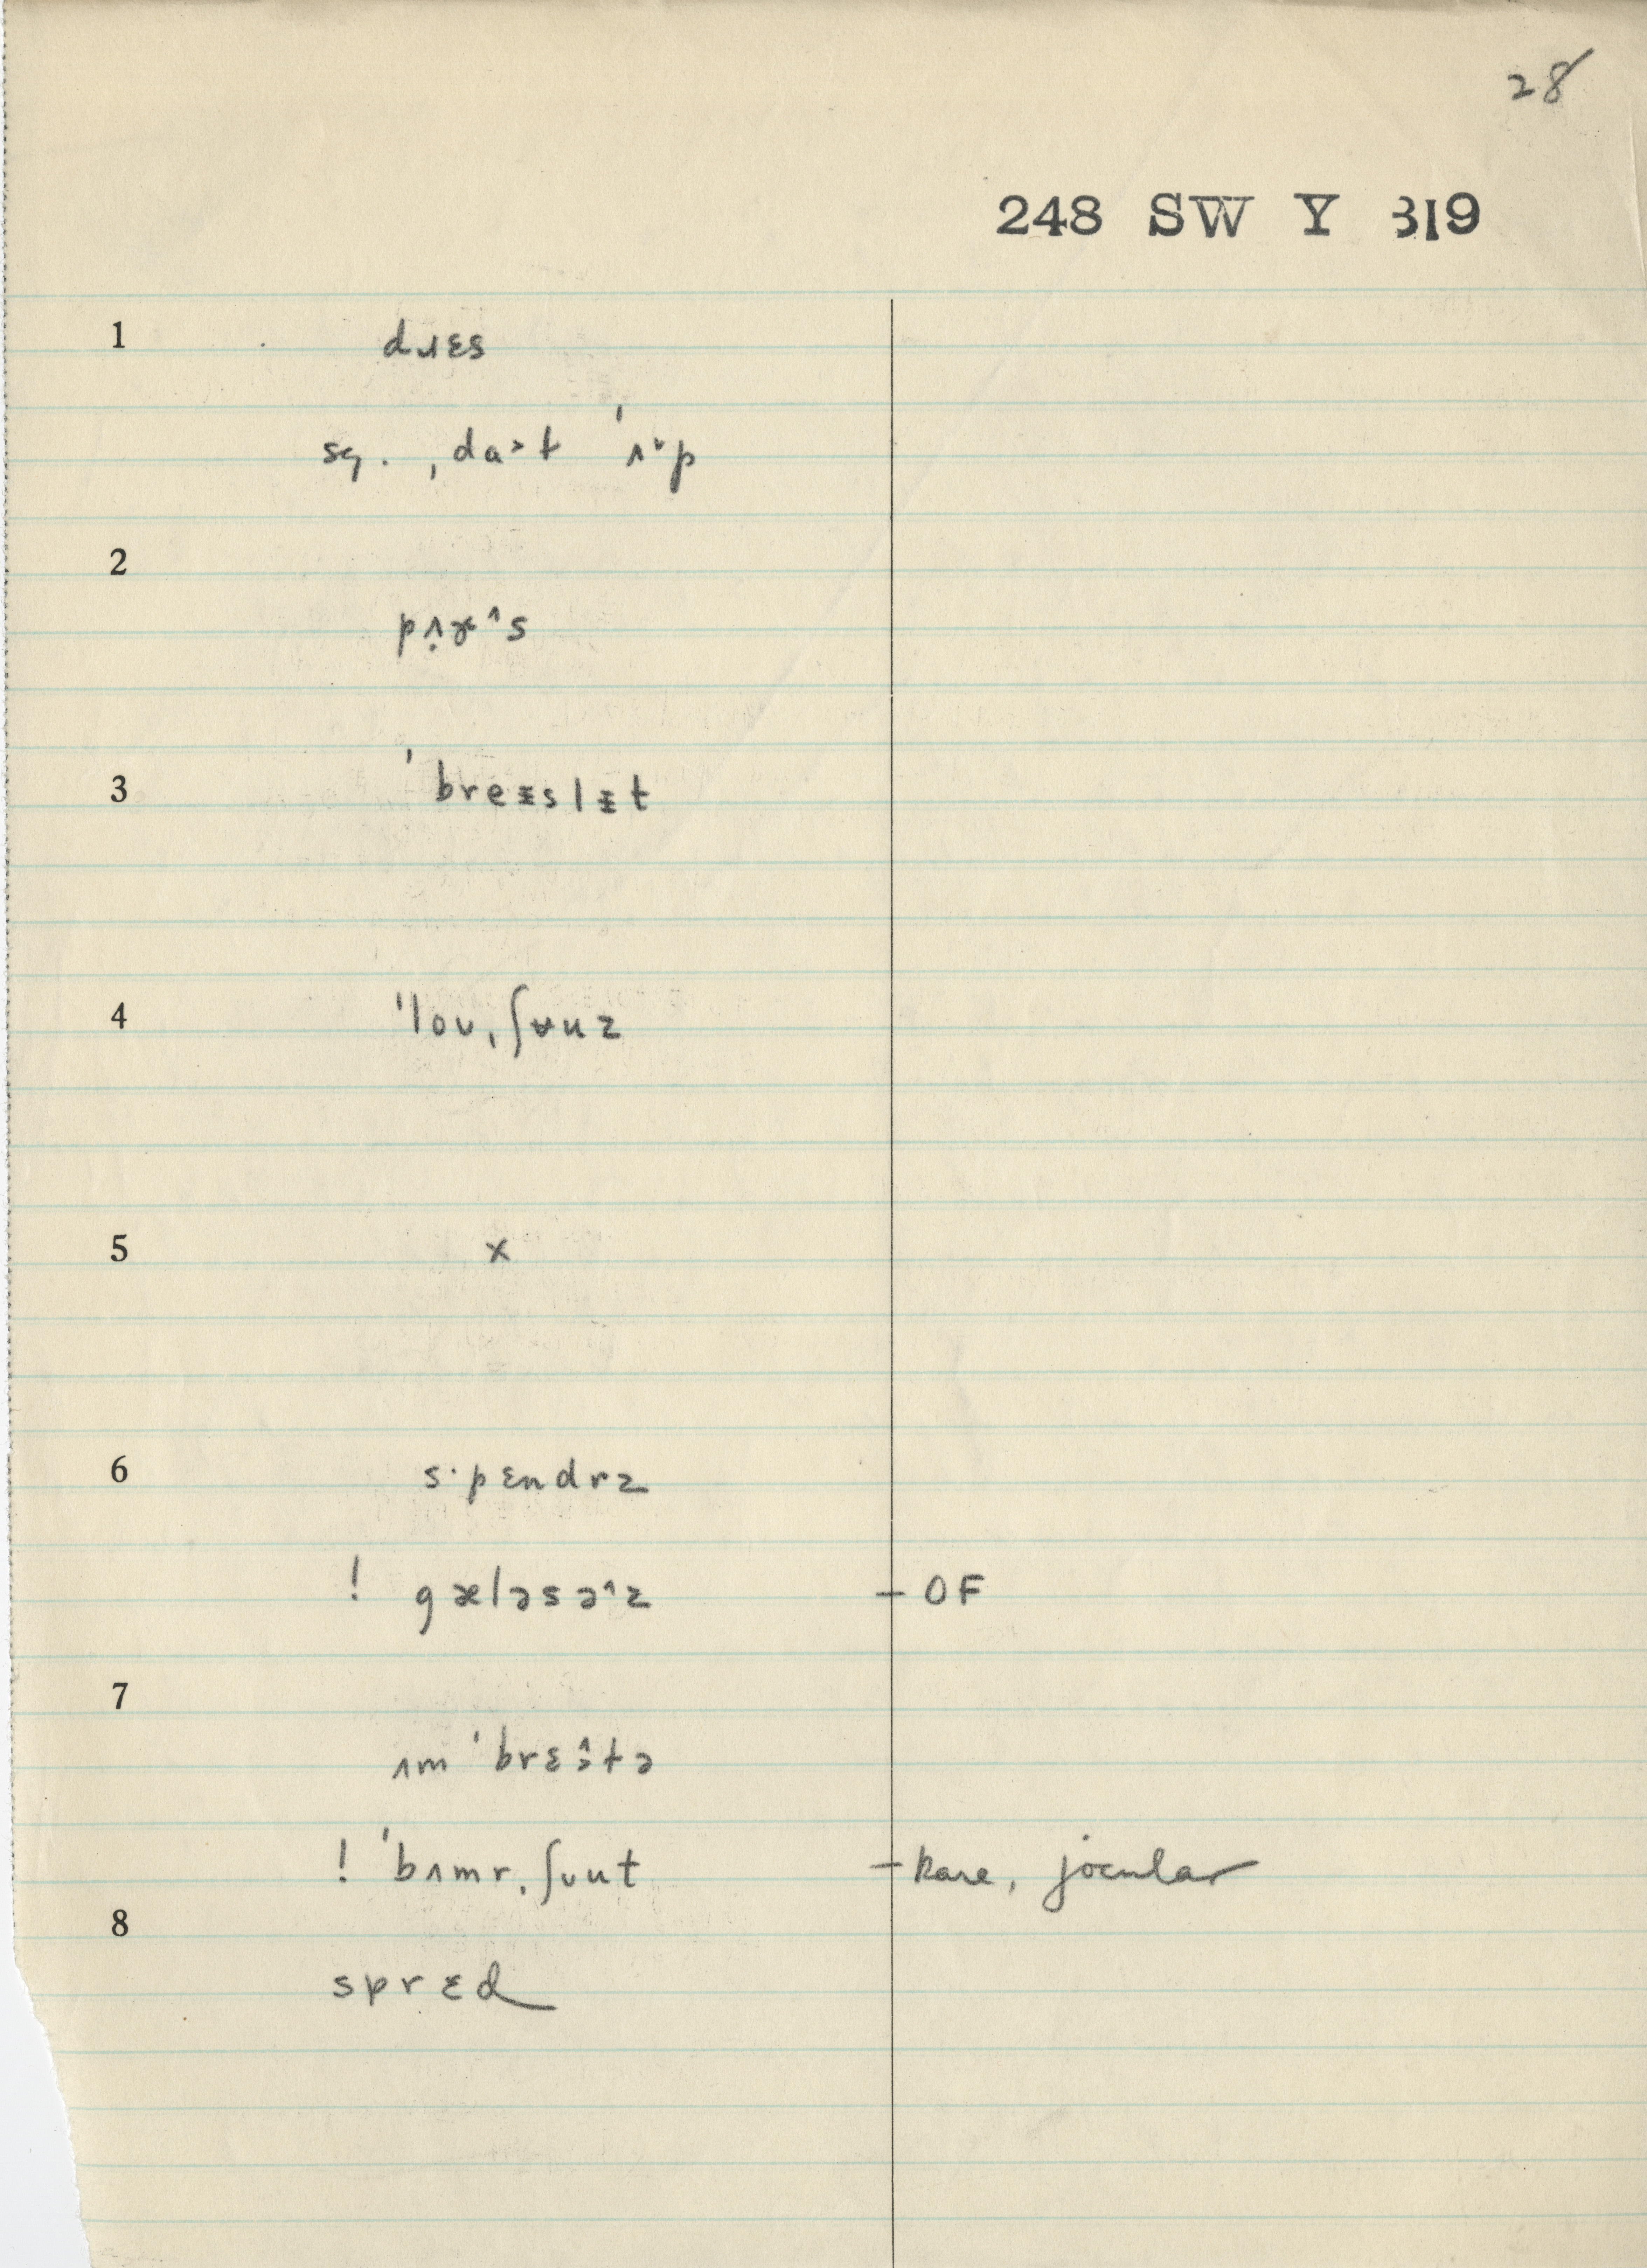 28
248 SW Y 319
1 dɹɛs
sg. ˌdaᵊt ˈʌᶹp
2
pʌ̣ɚ^s
3 ˈbreᵻslᵻt
4 ˈloʊˌʃʉuz
5 x
6 s·pɛndrz
! gæləsə^z - OF
7
ʌm ˈbrɛə̂tə
! ˈbʌmrˌʃʊut - Rare, jocular
8
sprɛd